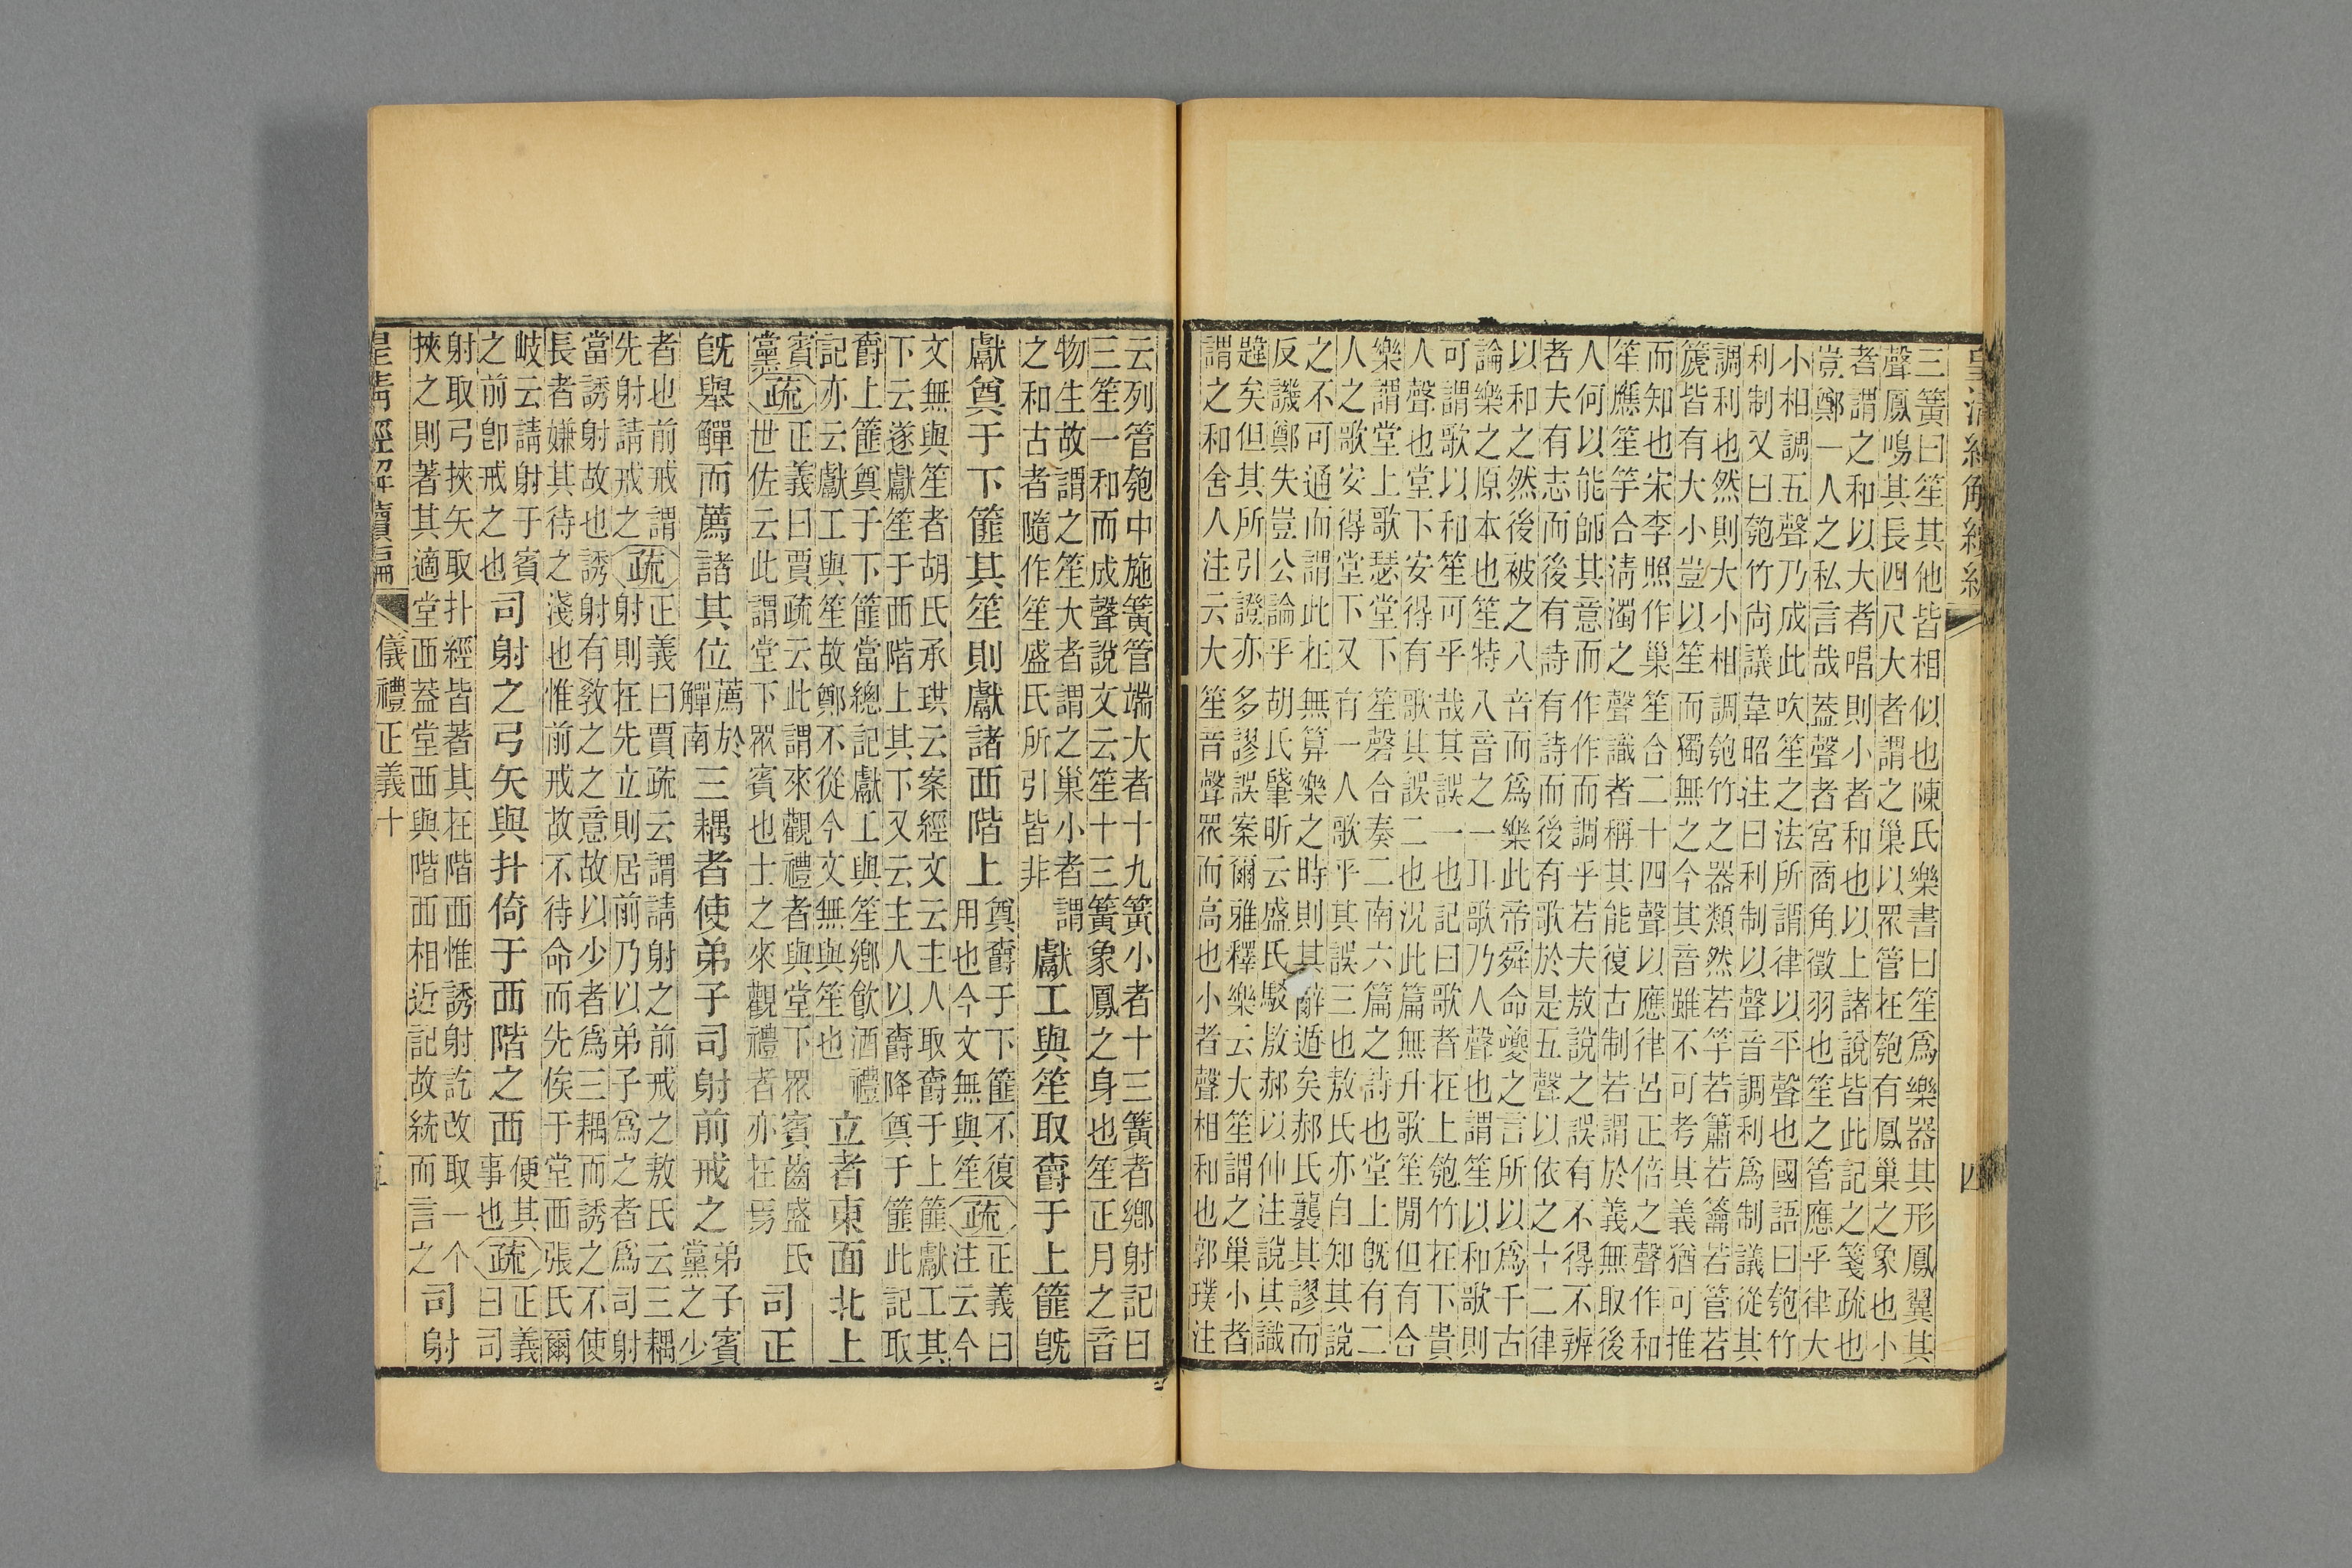 皇清經解續編
四
三簧曰笙其他皆相似也陳氏樂書曰笙爲樂器其形鳳翼其
聲鳳鳴其長四尺大者謂之巢以眾管在匏有鳳巢之象也小
者謂之和以大者唱則小者和也以上諸說皆此記之箋疏也
豈鄭一人之私言哉蓋聲者宮商角徵羽也笙之管應乎律大
小相調五聲乃成此吹笙之法所謂律以平聲也國語曰匏竹
利制又曰匏竹尚議韋昭注曰利制以聲音調利爲制議從其
調利也然則大小相調匏竹之器類然若竽若簫若籥若管若
篪皆有大小豈以笙而獨無之今其音雖不可考其義猶可推
而知也宋李照作巢笙合二十四聲以應律呂正倍之聲作和
笙應笙竽合清濁之聲識者稱其能復古制若謂於義無取後
人何以能師其意而作作而調乎若夫敖說之誤有不得不辨
者夫有志而後有詩有詩而後有歌於是五聲以依之十二律
以和之然後被之八音而爲樂此帝舜命夔之言所以爲千古
論樂之原本也笙特八音之一耳歌乃人聲也謂笙以和歌則
可謂歌以和笙可乎哉其誤一也記曰歌者在上匏竹在下貴
人聲也堂下安得有歌其誤二也況此篇無升歌笙閒但有合
樂謂堂上歌瑟堂下笙磬合奏二南六篇之詩也堂上旣有二
人之歌安得堂下又有一人歌乎其誤三也敖氏亦自知其說
之不可通而謂此在無算樂之時則其辭遁矣郝氏襲其謬而
反譏鄭失豈公論乎胡氏肇昕云盛氏駁敖郝以仲注說其識
韙矣但其所引證亦多謬誤案爾雅釋樂云大笙謂之巢小者
謂之和舍人注云大笙音聲眾而高也小者聲相和也郭璞注
云列管匏中施簧管端大者十九簧小者十三簧者鄉射記曰
三笙一和而成聲說文云笙十三簧象鳳之身也笙正月之音
物生故謂之笙大者謂之巢小者謂
之和古者隨作笙盛氏所引皆非
獻工與笙取爵于上篚旣
獻奠于下篚其笙則獻諸西階上
奠爵于下篚不復
用也今文無與笙
疏
正義曰
注云今
文無與笙者胡氏承珙云案經文云主人取爵于上篚獻工其
下云遂獻笙于西階上其下又云主人以爵降奠于篚此記取
爵上篚奠于下篚當總記獻工與笙鄉飲酒禮
記亦云獻工與笙故鄭不從今文無與笙也
立者東面北上
賓
黨
疏
正義曰賈疏云此謂來觀禮者與堂下眾賓齒盛氏
世佐云此謂堂下眾賓也士之來觀禮者亦在焉
司正
旣舉觶而薦諸其位
薦於
觶南
三耦者使弟子司射前戒之
弟子賓
黨之少
者也前戒謂
先射請戒之
疏
正義曰賈疏云謂請射之前戒之敖氏云三耦
射則在先立則居前乃以弟子爲之者爲司射
當誘射故也誘射有教之之意故以少者爲三耦而誘之不使
長者嫌其待之淺也惟前戒故不待命而先俟于堂西張氏爾
岐云請射于賓
之前卽戒之也
司射之弓矢與扑倚于西階之西
便其
事也
疏
正義
曰司
射取弓挾矢取扑經皆著其在階西惟誘射訖改取一个
挾之則著其適堂西蓋堂西與階西相近記故統而言之
司射
皇清經解續編
儀禮正義十
五